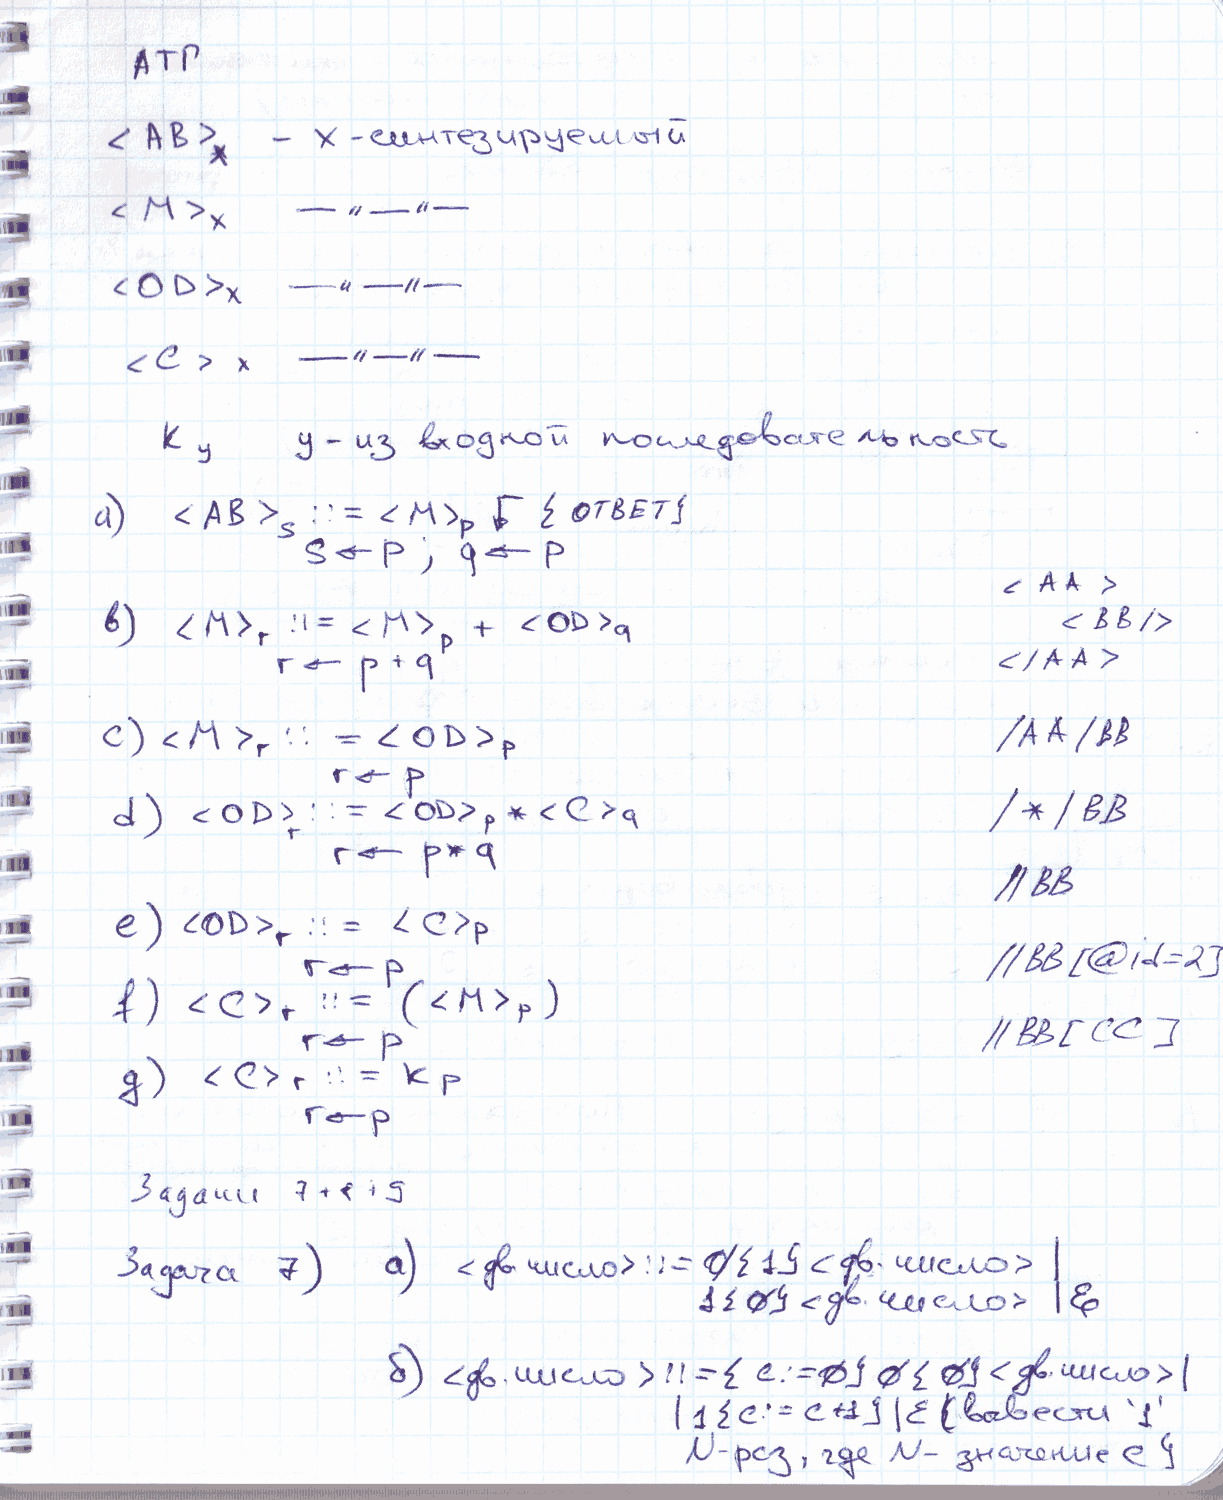 АТГ
<AB>x - x - синтезируемый
<M>x — " — " —
<OD>x — " — " —
<C>x — " — " —
Ky y - из входной последовательность
a) <AB>s ::= <M>p ↓ {ОТВЕТ}
s ← p ; q ← p
b) <M>r ::= <M>p + <OD>q
r ← p + q
c) <M>r ::= <OD>p
r ← p
d) <OD>r ::= <OD>p * <C>q
r ← p * q
e) <OD>r ::= <C>p
r ← p
f) <C>r ::= (<M>p)
r ← p
g) <C>r ::= Kp
r ← p
<AA>
<BB/>
</AA>
/AA/BB
/*/BB
//BB
//BB[@id=2]
//BB[CC]
Задачи 7+8+9
Задача 7) а) <дв. число> ::= 0{1}<дв. число> |
1{0}<дв. число> | ε
б) <дв. число> ::= {c:=0}0{0}<дв. число> |
| 1{c:=c+1} | ε {вывести '1'
N-раз, где N- значение c}